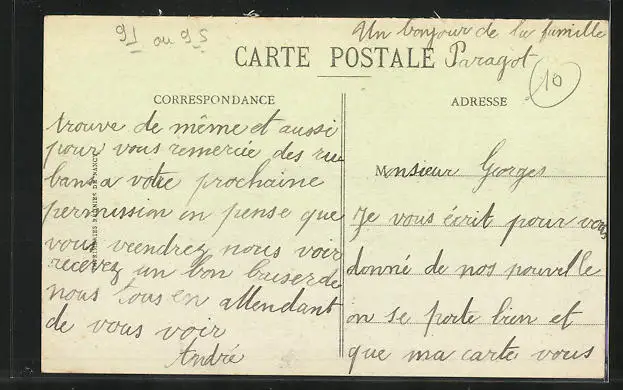 91 au 95
Un bonjour de la famille
CARTE POSTALE Paragot
10
CORRESPONDANCE
ADRESSE
Monsieur Georges
Je vous écrit pour vous
donné de nos nouvelle
on se porte bien et
que ma carte vous
trouve de même et aussi
pour vous remerciée des ru
bans a votre prochaine
permission on pense que
vous viendrez nous voir
recevez un bon baiser de
nous tous en attendant
de vous voir
André
IMPRIMERIES RÉUNIES DE NANCY